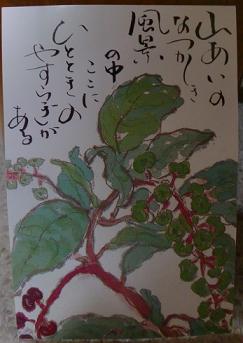 山あいの
なつかしき
風景
の中
ここに
ひとときの
やすらぎが
ある